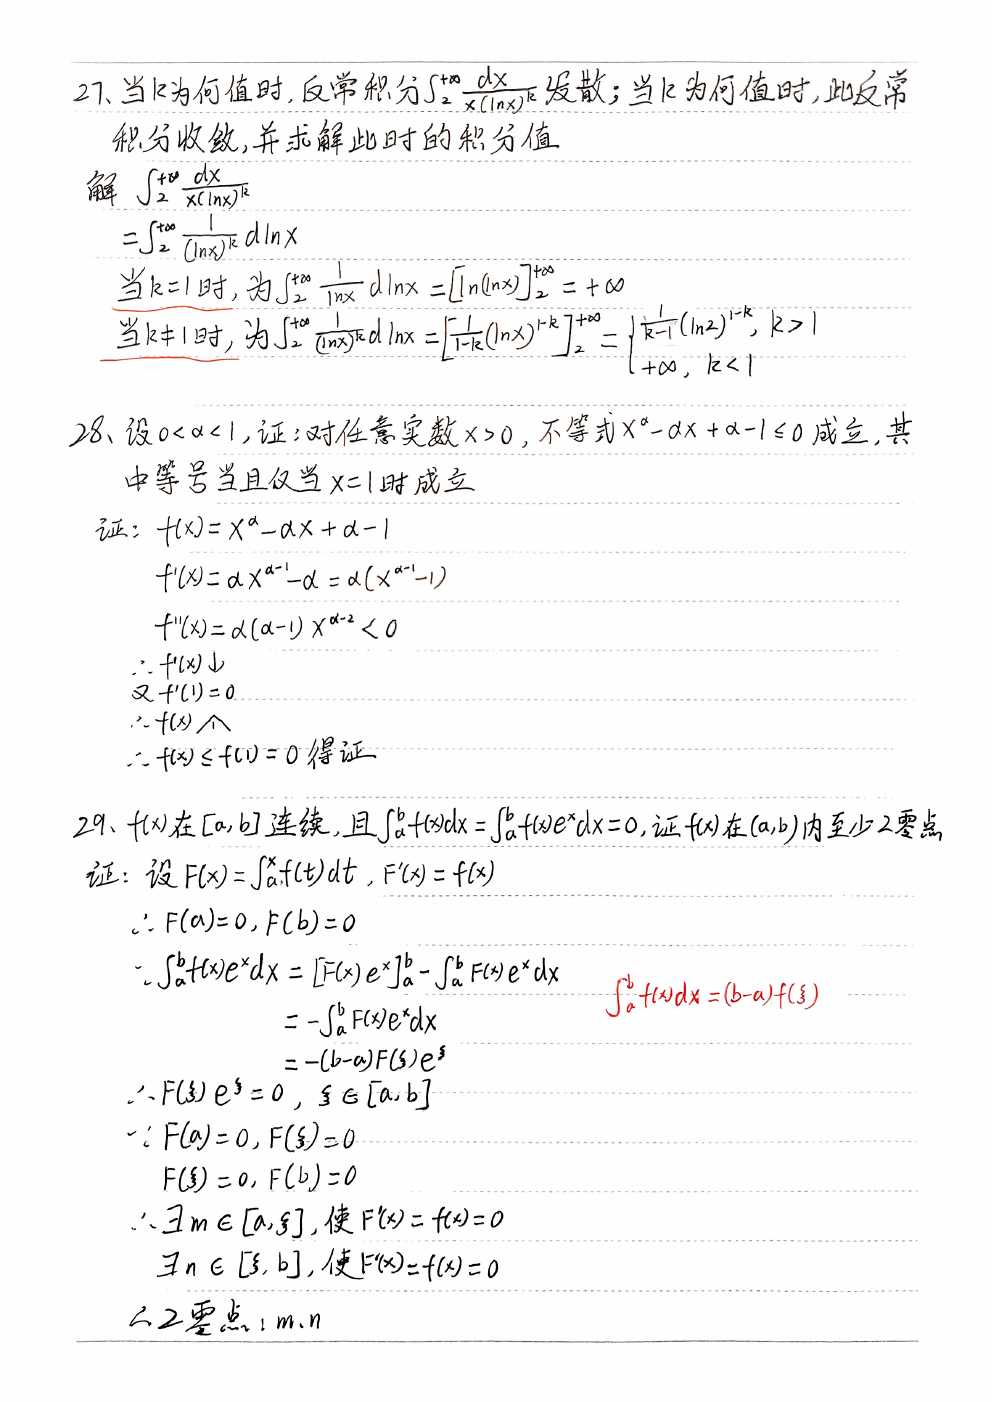 27、当k为何值时,反常积分∫₂^{+∞} dx/(x(lnx)^k) 发散;当k为何值时,此反常
积分收敛,并求解此时的积分值
解 ∫₂^{+∞} dx/(x(lnx)^k)
=∫₂^{+∞} 1/(lnx)^k dlnx
当k=1时,为∫₂^{+∞} 1/lnx dlnx=[ln(lnx)]₂^{+∞}=+∞
当k≠1时,为∫₂^{+∞} 1/(lnx)^k dlnx=[1/(1-k) (lnx)^{1-k}]₂^{+∞}={1/(k-1) (ln2)^{1-k}, k>1
+∞, k<1
28、设0<α<1,证:对任意实数x>0,不等式x^α-αx+α-1≤0成立,其
中等号当且仅当x=1时成立
证: f(x)=x^α-αx+α-1
f'(x)=αx^{α-1}-α=α(x^{α-1}-1)
f''(x)=α(α-1)x^{α-2}<0
∴f'(x)↓
又f'(1)=0
∴f(x)个
∴f(x)≤f(1)=0得证
29、f(x)在[a,b]连续,且∫ₐᵇf(x)dx=∫ₐᵇf(x)e^x dx=0,证f(x)在(a,b)内至少2零点
证: 设F(x)=∫ₐˣf(t)dt, F'(x)=f(x)
∴F(a)=0, F(b)=0
∵∫ₐᵇf(x)e^x dx=[F(x)e^x]ₐᵇ-∫ₐᵇF(x)e^x dx
∫ₐᵇf(x)dx=(b-a)f(ξ)
=-∫ₐᵇF(x)e^x dx
=-(b-a)F(ξ)e^ξ
∴F(ξ)e^ξ=0, ξ∈[a,b]
∵F(a)=0, F(ξ)=0
F(ξ)=0, F(b)=0
∴∃m∈[a,ξ],使F'(x)=f(x)=0
∃n∈[ξ,b],使F'(x)=f(x)=0
∴2零点:m、n